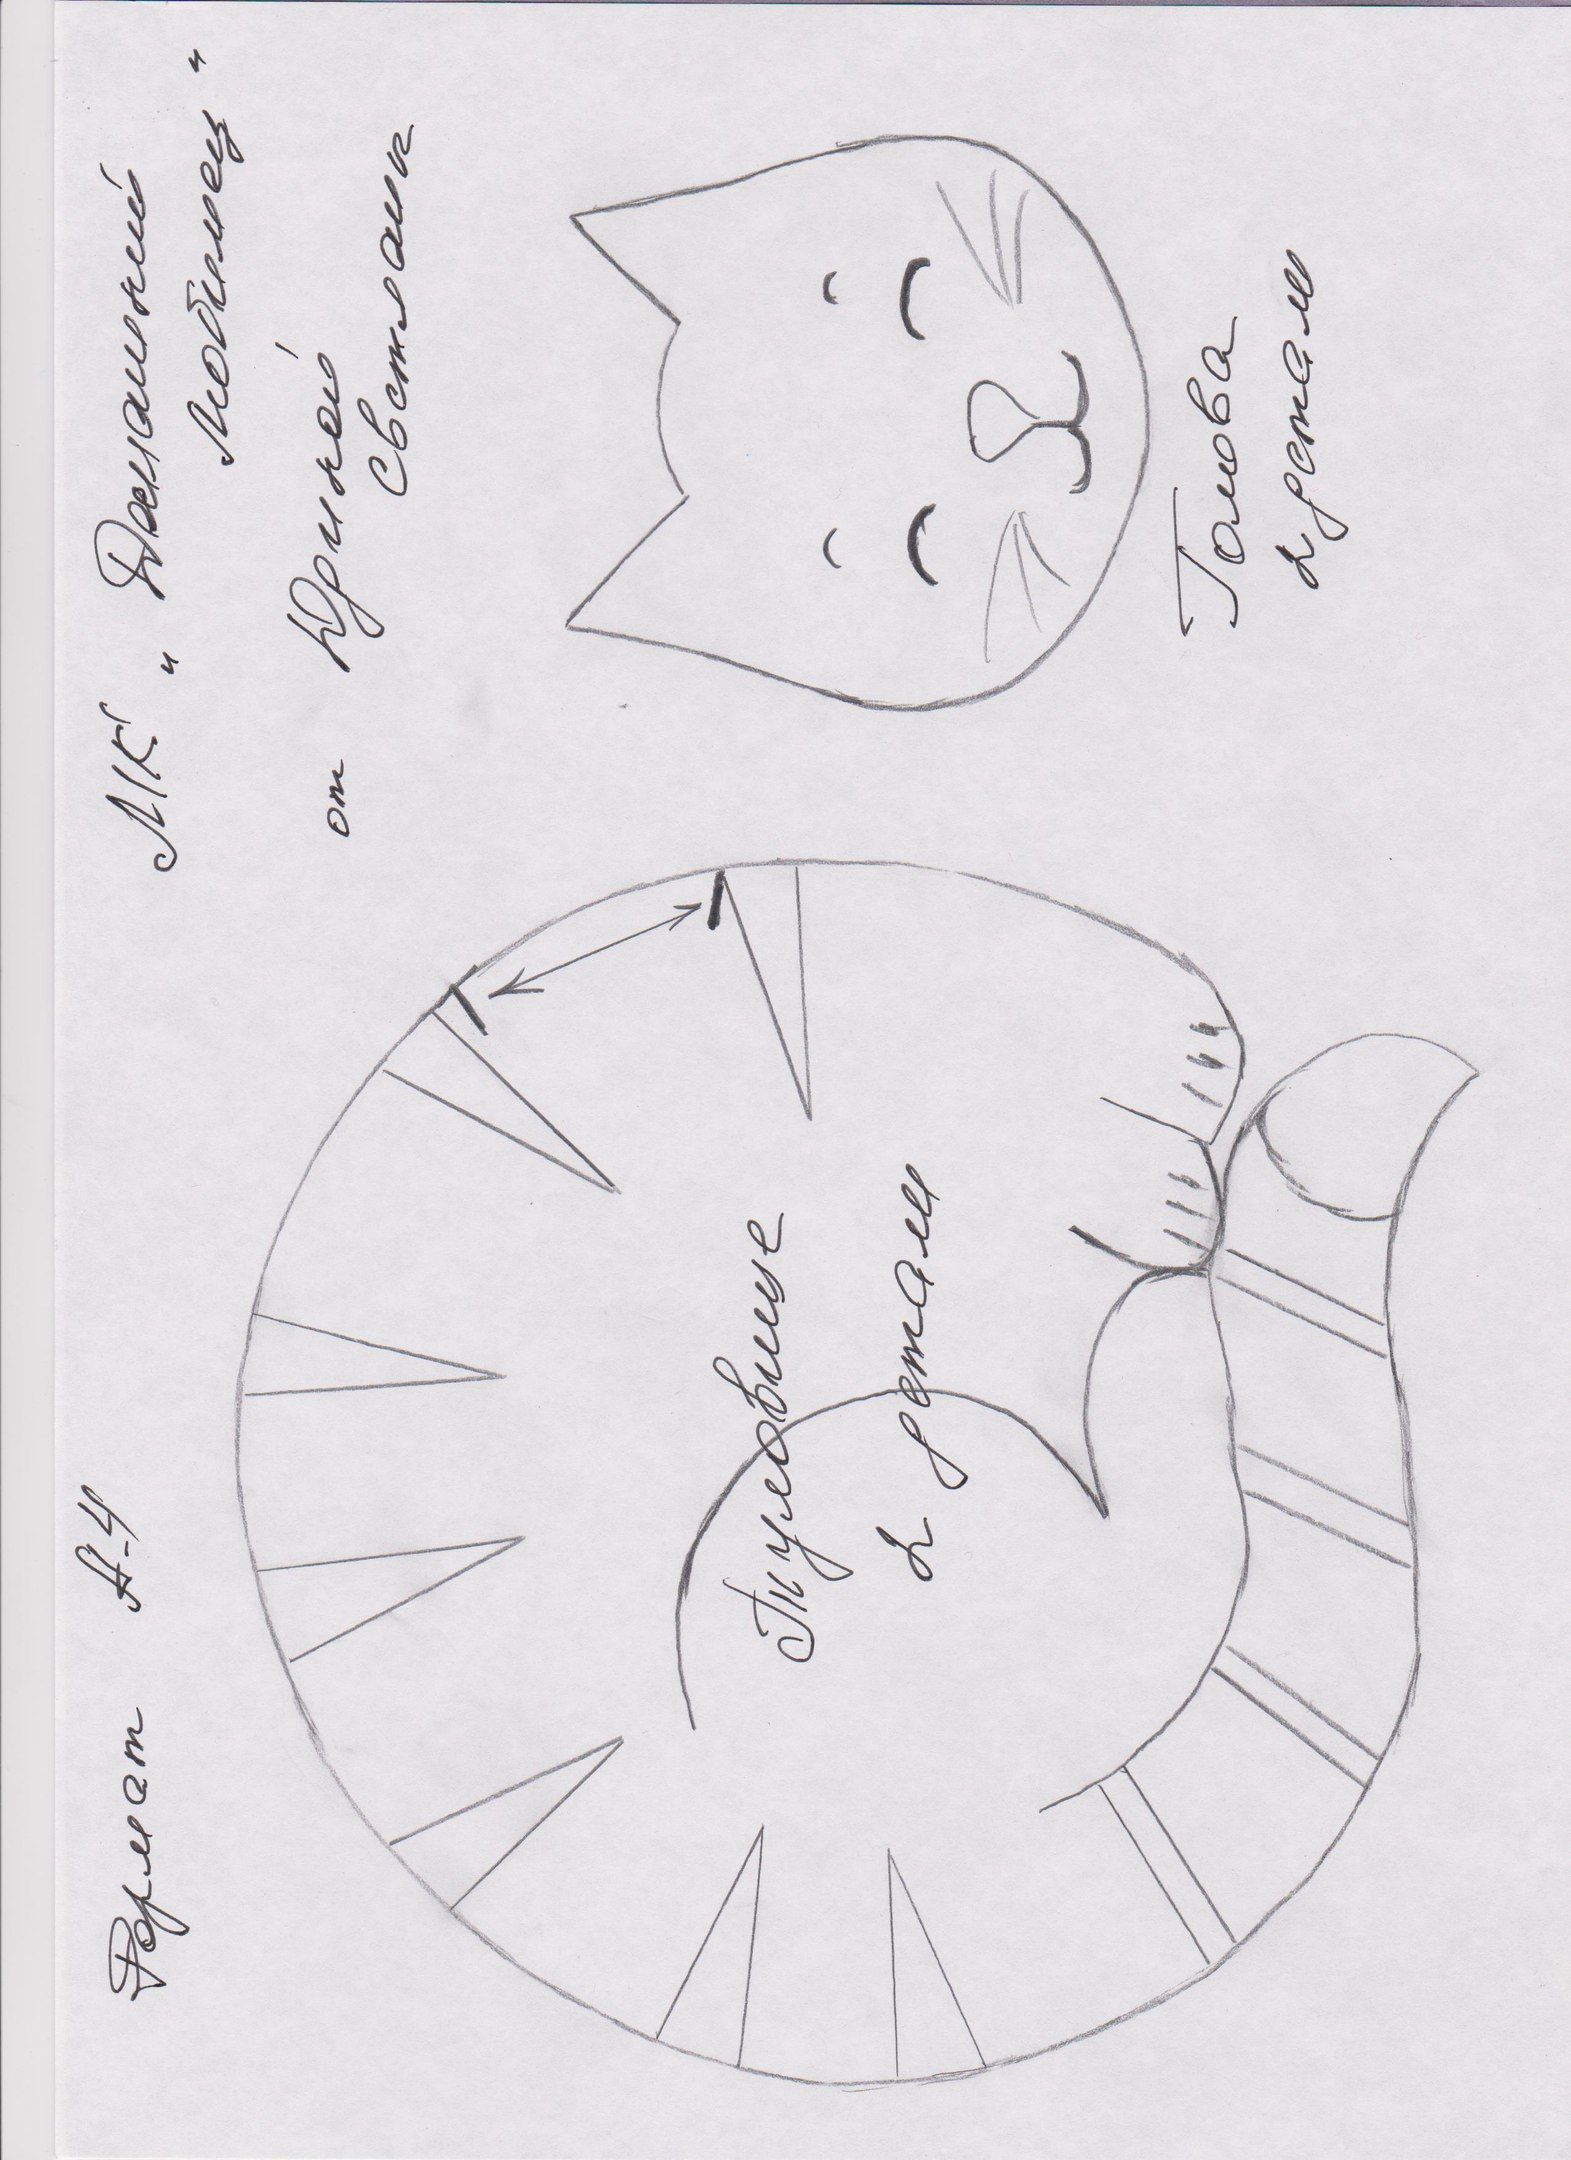 Формат А-4
МК "Домашний
любимец"
от Юриной
Светланы
Туловище
2 детали
Голова
2 детали